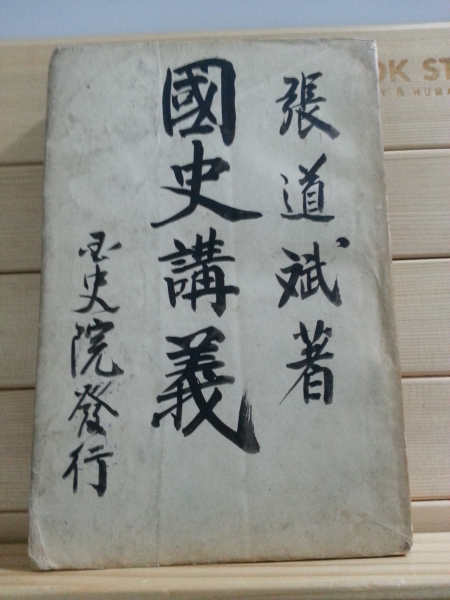 張道斌著
國史講義
国史院發行
OK ST
Y & HUMA